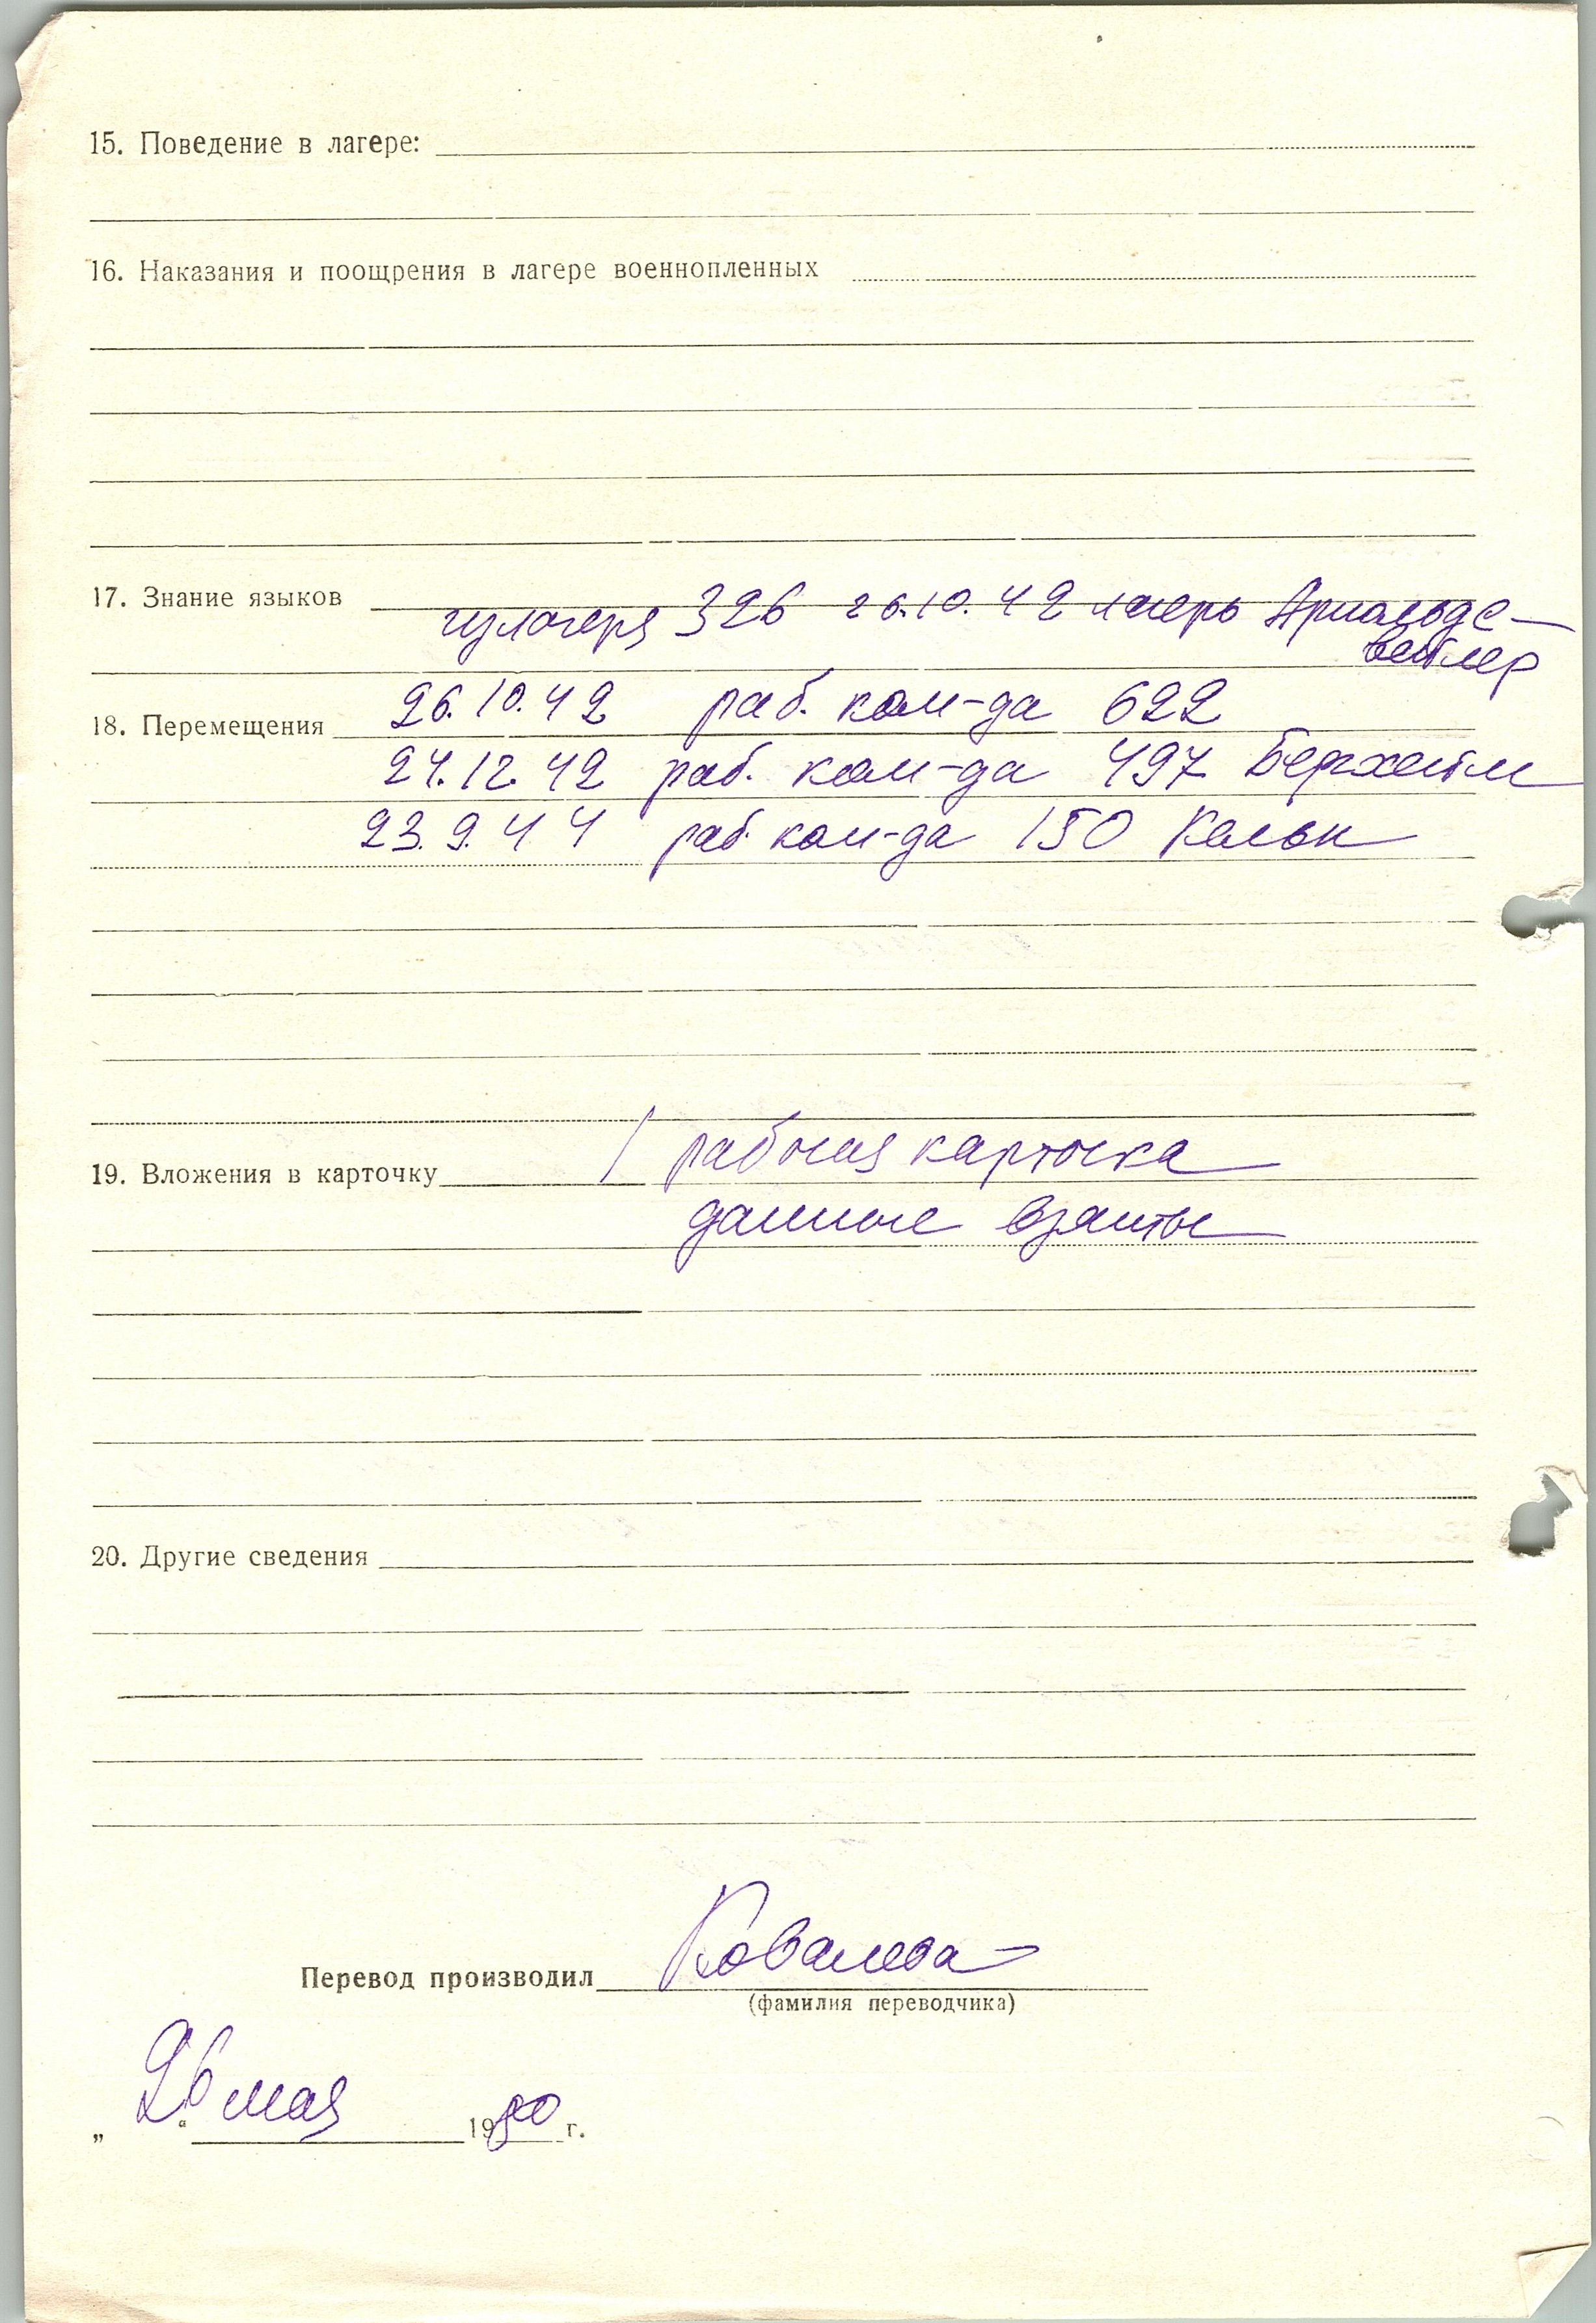 15. Поведение в лагере:
16. Наказания и поощрения в лагере военнопленных
17. Знание языков
из лагеря 326 26.10.42 лагерь Арнольдс-
вейлер
26.10.42 раб. ком-да 622
18. Перемещения
24.12.42 раб. ком-да 497 Бергхейм
23.9.44 раб. ком-да 150 Кельн
19. Вложения в карточку
рабочая карточка
данные взяты
20. Другие сведения
Перевод производил Ковалева
(фамилия переводчика)
„26“ мая 1980 г.